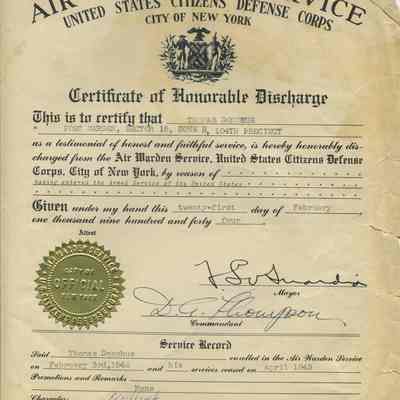 AIR SERVICE
UNITED STATES CITIZENS DEFENSE CORPS
CITY OF NEW YORK
Certificate of Honorable Discharge
This is to certify that THOMAS DONOHUE
POST WARDEN, SECTOR 16, ZONE B, 104TH PRECINCT
as a testimonial of honest and faithful service, is hereby honorably dis-
charged from the Air Warden Service, United States Citizens Defense
Corps, City of New York, by reason of
having entered the Armed Service of the United States
Given under my hand this twenty-first day of February,
one thousand nine hundred and forty four.
Attest
CITY OF
OFFICIAL
NEW YORK
F. LaGuardia
Mayor
D. A. Thompson
Commandant
Service Record
Said Thomas Donohue enrolled in the Air Warden Service
on February 3rd, 1942 and his services ceased on April 1943
Promotions and Remarks None
Character